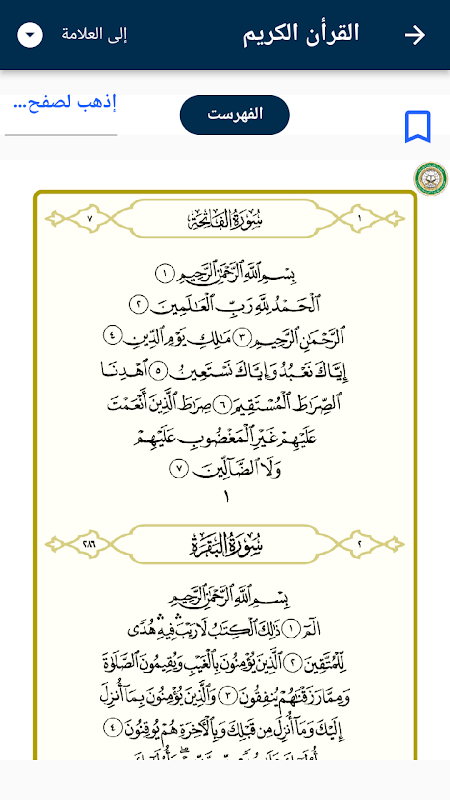 القرأن الكريم
إلى العلامة
الفهرست
إذهب لصفح...
١ سُورَةُ الفَاتِحَة ٧
بِسْمِ اللَّهِ الرَّحْمَٰنِ الرَّحِيمِ ١
الْحَمْدُ لِلَّهِ رَبِّ الْعَالَمِينَ ٢
الرَّحْمَٰنِ الرَّحِيمِ ٣ مَالِكِ يَوْمِ الدِّينِ ٤
إِيَّاكَ نَعْبُدُ وَإِيَّاكَ نَسْتَعِينُ ٥ اهْدِنَا
الصِّرَاطَ الْمُسْتَقِيمَ ٦ صِرَاطَ الَّذِينَ أَنْعَمْتَ
عَلَيْهِمْ غَيْرِ الْمَغْضُوبِ عَلَيْهِمْ
وَلَا الضَّالِّينَ ٧
١
٢ سُورَةُ البَقَرَة ٢٨٦
بِسْمِ اللَّهِ الرَّحْمَٰنِ الرَّحِيمِ
الٓمٓ ١ ذَٰلِكَ الْكِتَابُ لَا رَيْبَ ۛ فِيهِ ۛ هُدًى
لِلْمُتَّقِينَ ٢ الَّذِينَ يُؤْمِنُونَ بِالْغَيْبِ وَيُقِيمُونَ الصَّلَاةَ
وَمِمَّا رَزَقْنَاهُمْ يُنْفِقُونَ ٣ وَالَّذِينَ يُؤْمِنُونَ بِمَا أُنْزِلَ
إِلَيْكَ وَمَا أُنْزِلَ مِنْ قَبْلِكَ وَبِالْآخِرَةِ هُمْ يُوقِنُونَ ٤